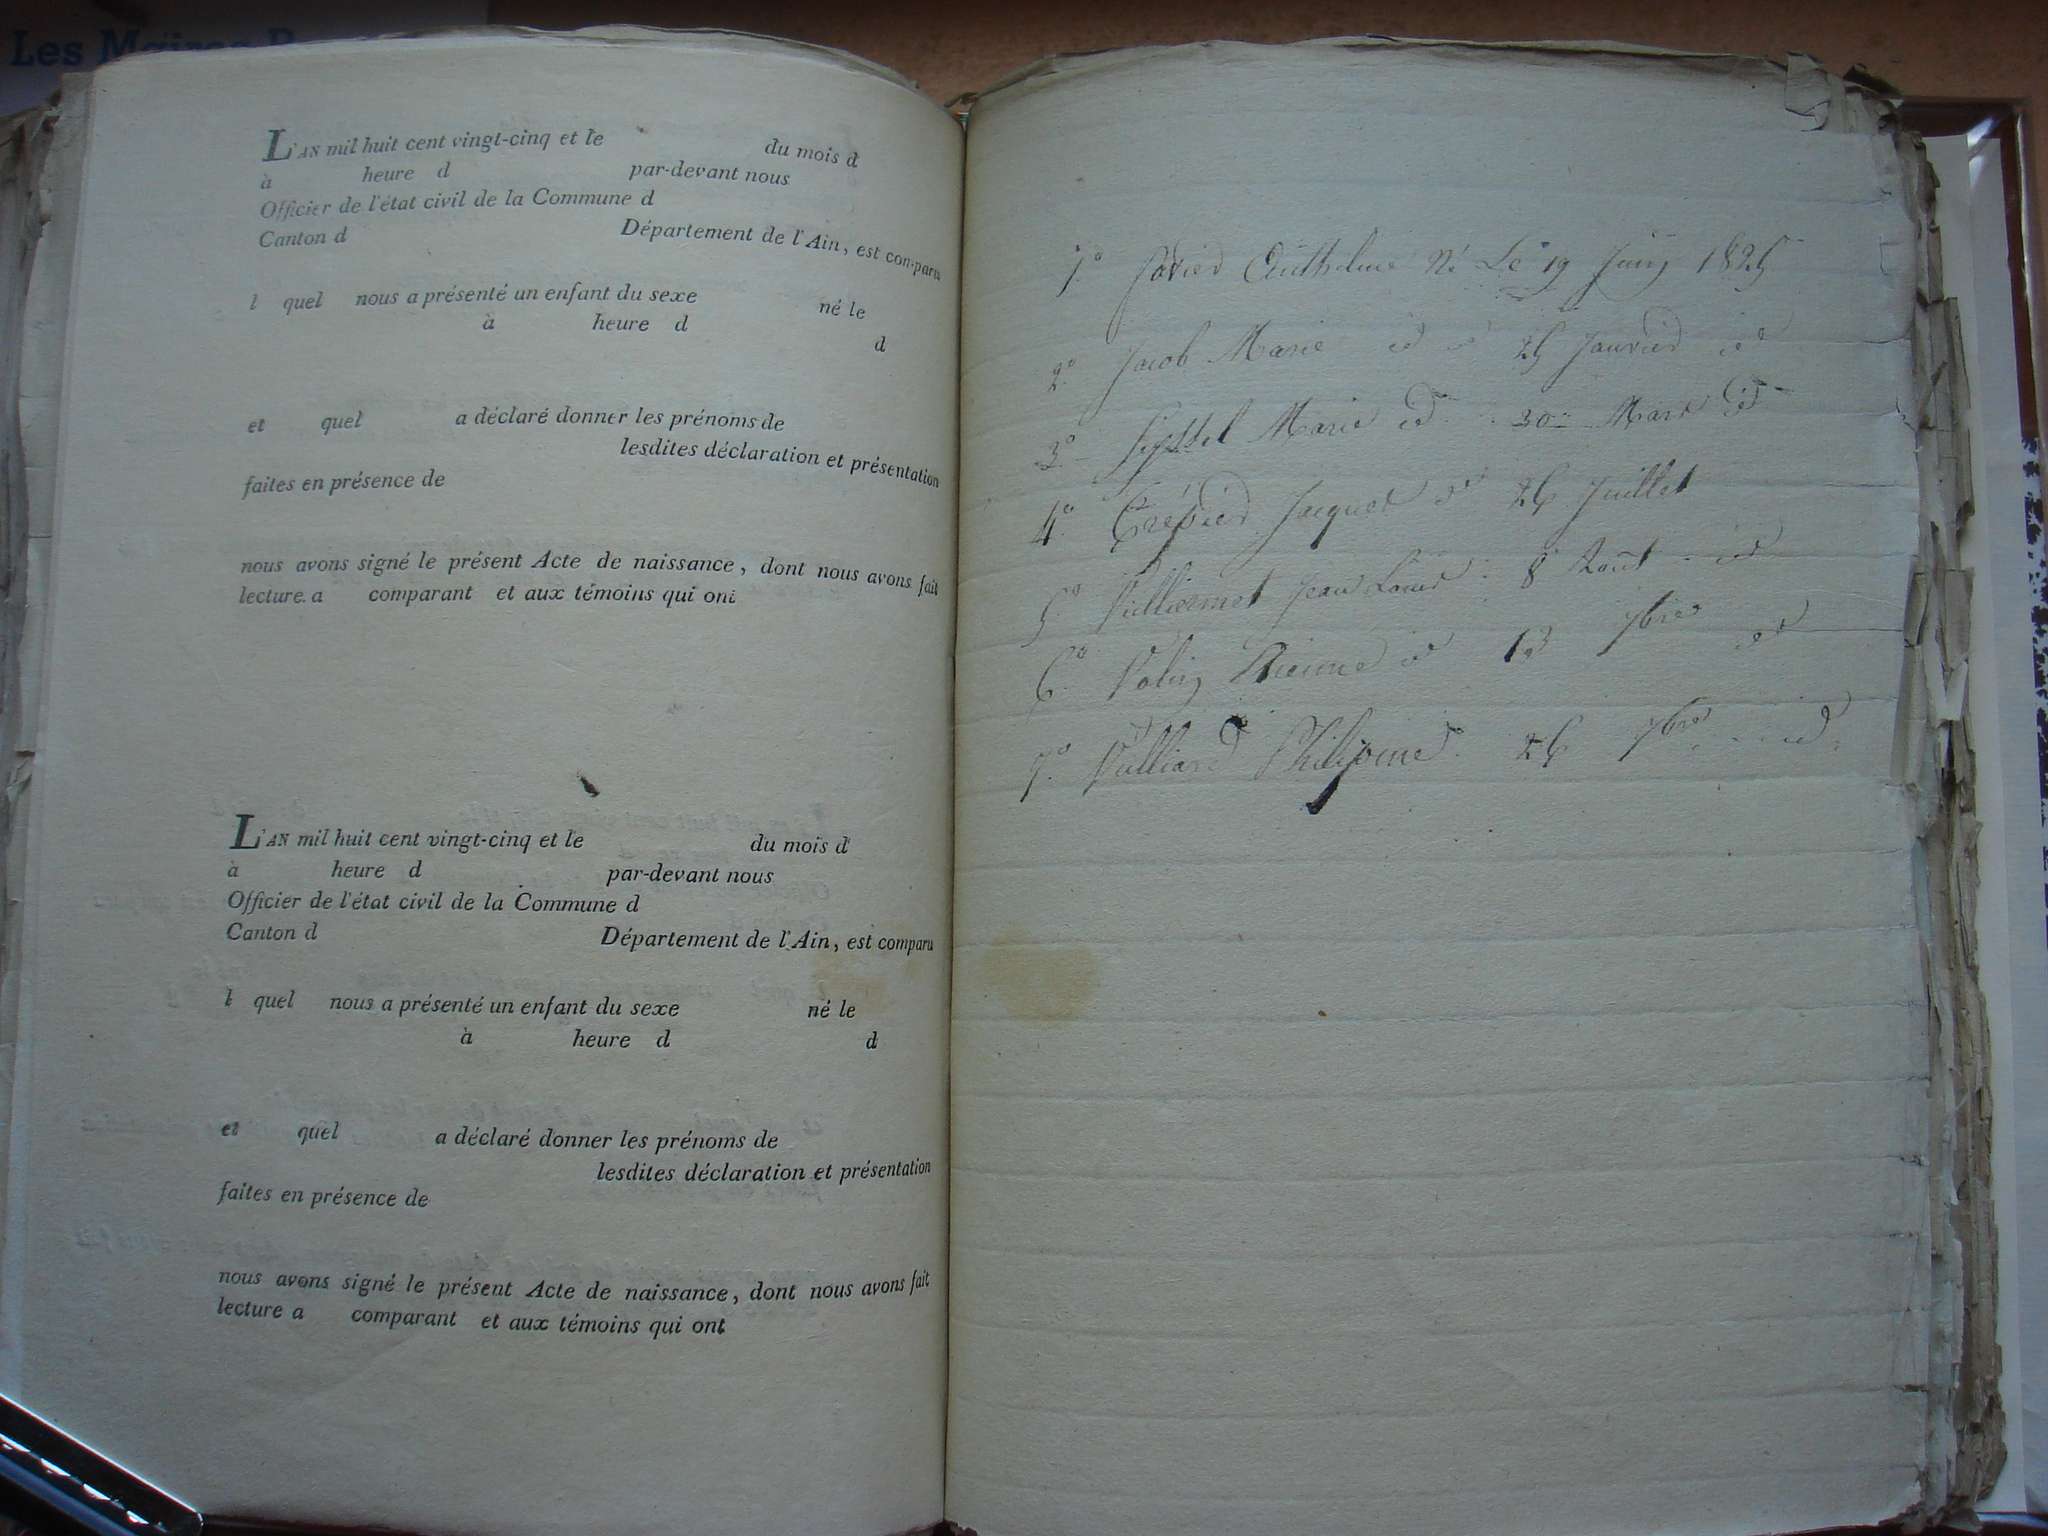 Les Maires
L'AN mil huit cent vingt-cinq et le du mois d
à heure d par-devant nous
Officier de l'état civil de la Commune d
Canton d Département de l'Ain, est comparu
l quel nous a présenté un enfant du sexe né le
à heure d d
et quel a déclaré donner les prénoms de
lesdites déclaration et présentation
faites en présence de
nous avons signé le présent Acte de naissance, dont nous avons fait
lecture a comparant et aux témoins qui ont
L'AN mil huit cent vingt-cinq et le du mois d
à heure d par-devant nous
Officier de l'état civil de la Commune d
Canton d Département de l'Ain, est comparu
l quel nous a présenté un enfant du sexe né le
à heure d d
et quel a déclaré donner les prénoms de
lesdites déclaration et présentation
faites en présence de
nous avons signé le présent Acte de naissance, dont nous avons fait
lecture a comparant et aux témoins qui ont
1° Anthelme Né Le 19 Juin 1825
2° Jacob Marie id 25 Janvier id
3° Marie id 30 Mars id
4° Crépier Jacques id 26 Juillet
5° Jean Louis 8 Aout id
6° Etienne id 13 7bre id
7° Vulliard 26 7bre id